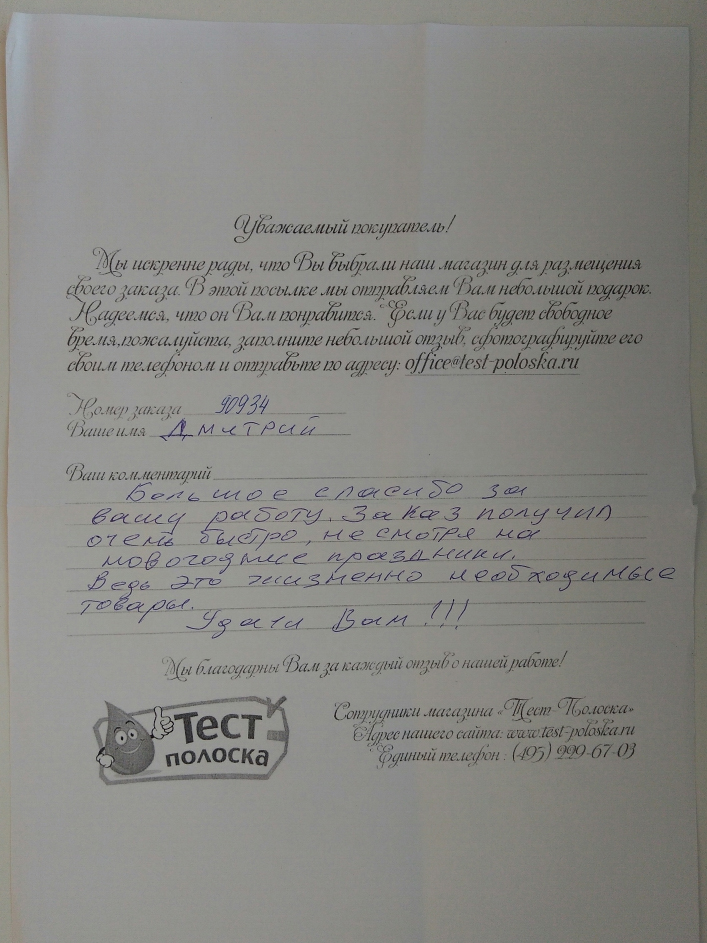 Уважаемый покупатель!
Мы искренне рады, что Вы выбрали наш магазин для размещения
своего заказа. В этой посылке мы отправляем Вам небольшой подарок.
Надеемся, что он Вам понравится. Если у Вас будет свободное
время,пожалуйста, заполните небольшой отзыв, сфотографируйте его
своим телефоном и отправьте по адресу: office@test-poloska.ru
Номер заказа 90934
Ваше имя Дмитрий
Ваш комментарий
Большое спасибо за
вашу работу. Заказ получил
очень быстро, не смотря на
новогодние праздники.
Ведь это жизненно необходимые
товары.
Удачи Вам!!!
Мы благодарны Вам за каждый отзыв о нашей работе!
Тест
полоска
Сотрудники магазина «Тест-Полоска»
Адрес нашего сайта: www.test-poloska.ru
Единый телефон : (495) 999-67-03